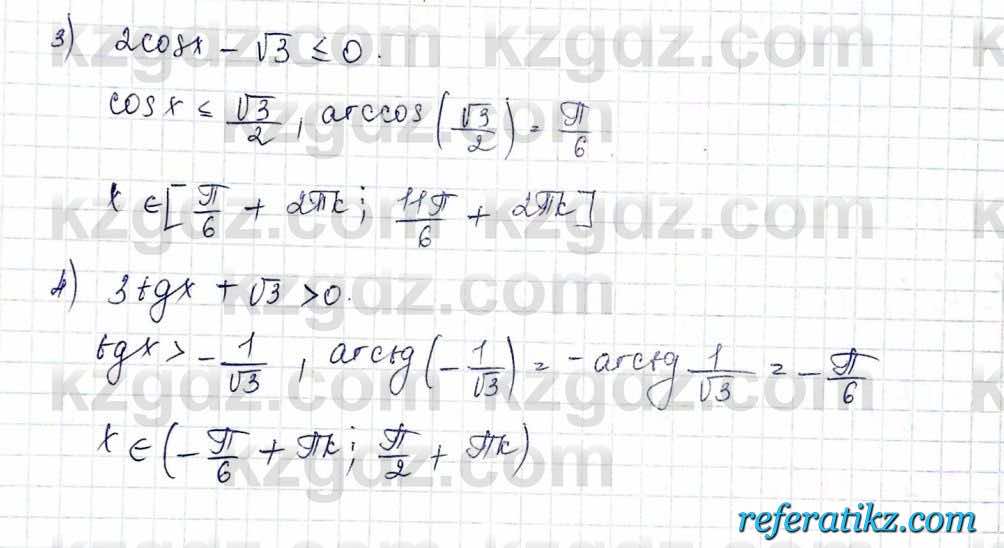 3) 2cosx - √3 ≤ 0.
cosx ≤ √3/2, arccos(√3/2) = π/6
x ∈ [π/6 + 2πk; 11π/6 + 2πk]
4) 3tgx + √3 > 0.
tgx > -1/√3, arctg(-1/√3) = -arctg 1/√3 = -π/6
x ∈ (-π/6 + πk; π/2 + πk)
kzgdz.com
referatikz.com